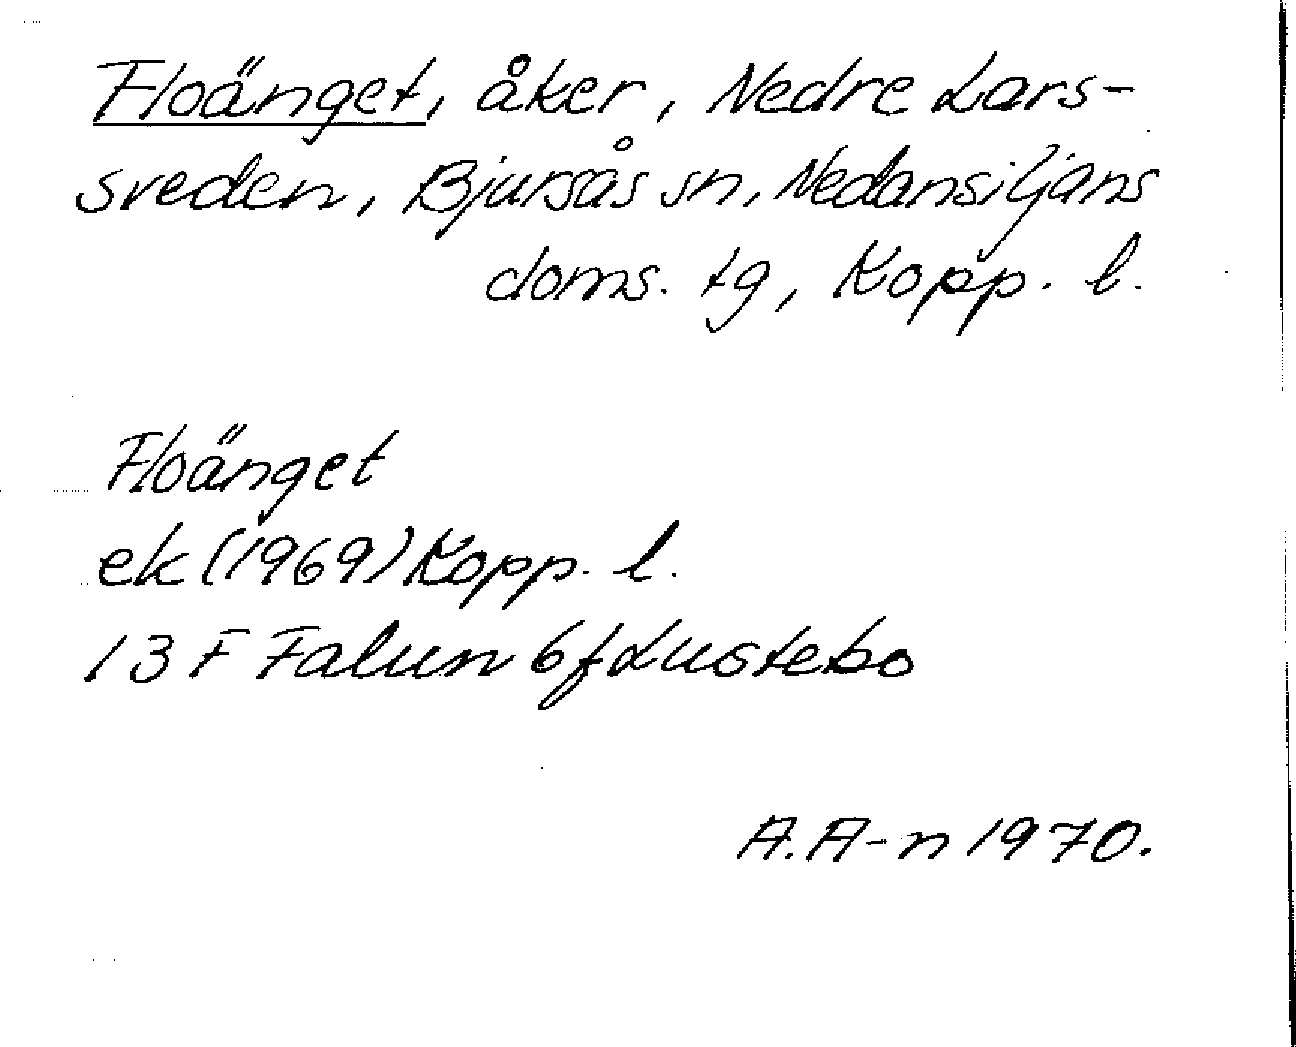 Floänget, åker, Nedre Lars-
sveden, Bjursås sn, Nedansiljans
doms. tg, Kopp. l.
Floänget
ek (1969) Kopp. l.
13 F Falun 6f Lustebo
A. A-n 1970.